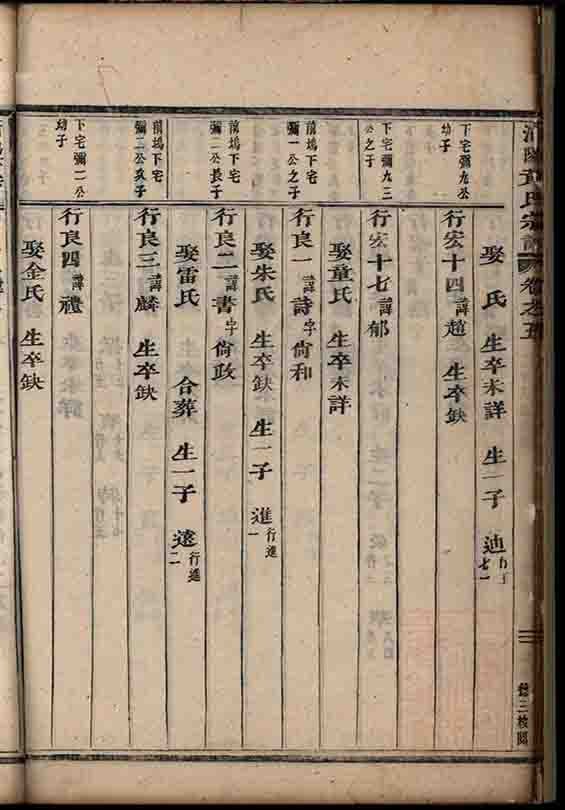 氏宗譜 卷之五
娶 氏 生卒未詳 生一子 迪
下宅彌九公幼子
行宏十四 諱趙 生卒缺
下宅彌九三公之子
行宏十七 諱郁
娶童氏 生卒未詳
前塢下宅彌一公之子
行良一 諱詩 字尙和
娶朱氏 生卒缺 生一子 進 行進一
前塢下宅彌二公長子
行良二 諱書 字尙政
娶雷氏 合葬 生一子 遠 行進二
前塢下宅彌二公次子
行良三 諱麟 生卒缺
下宅彌二公幼子
行良四 諱禮
娶金氏 生卒缺